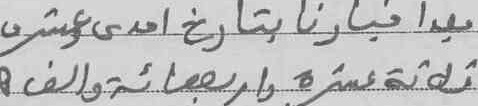 بعدا فبارنا بتاريخ احدى وعشرين
ثلاثة عشرة واربعمائة والف